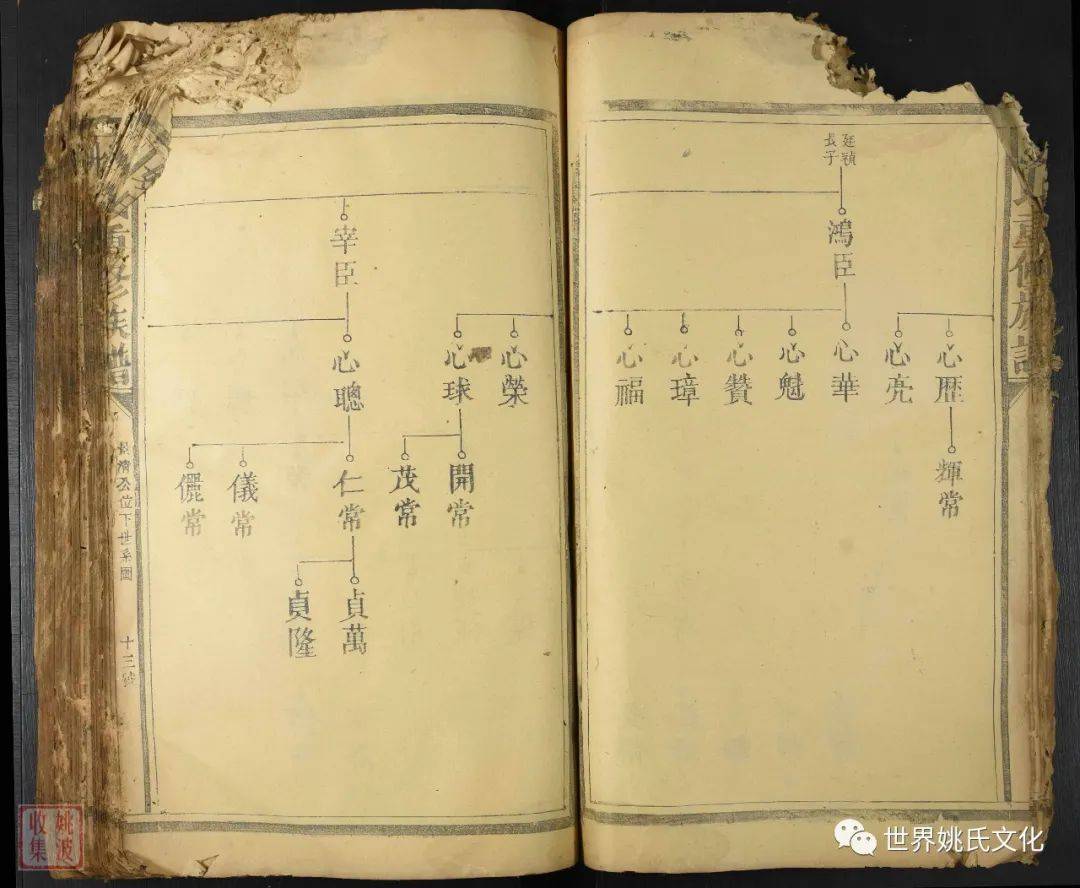 廷穎
長子
鴻臣
心歷
心亮
心華
心魁
心贊
心璋
心福
輝常
重修族譜
宰臣
心榮
心球
心聰
開常
茂常
仁常
儀常
儷常
貞萬
貞隆
重修族譜
公位下世系圖
十三號
姚波
收集
世界姚氏文化